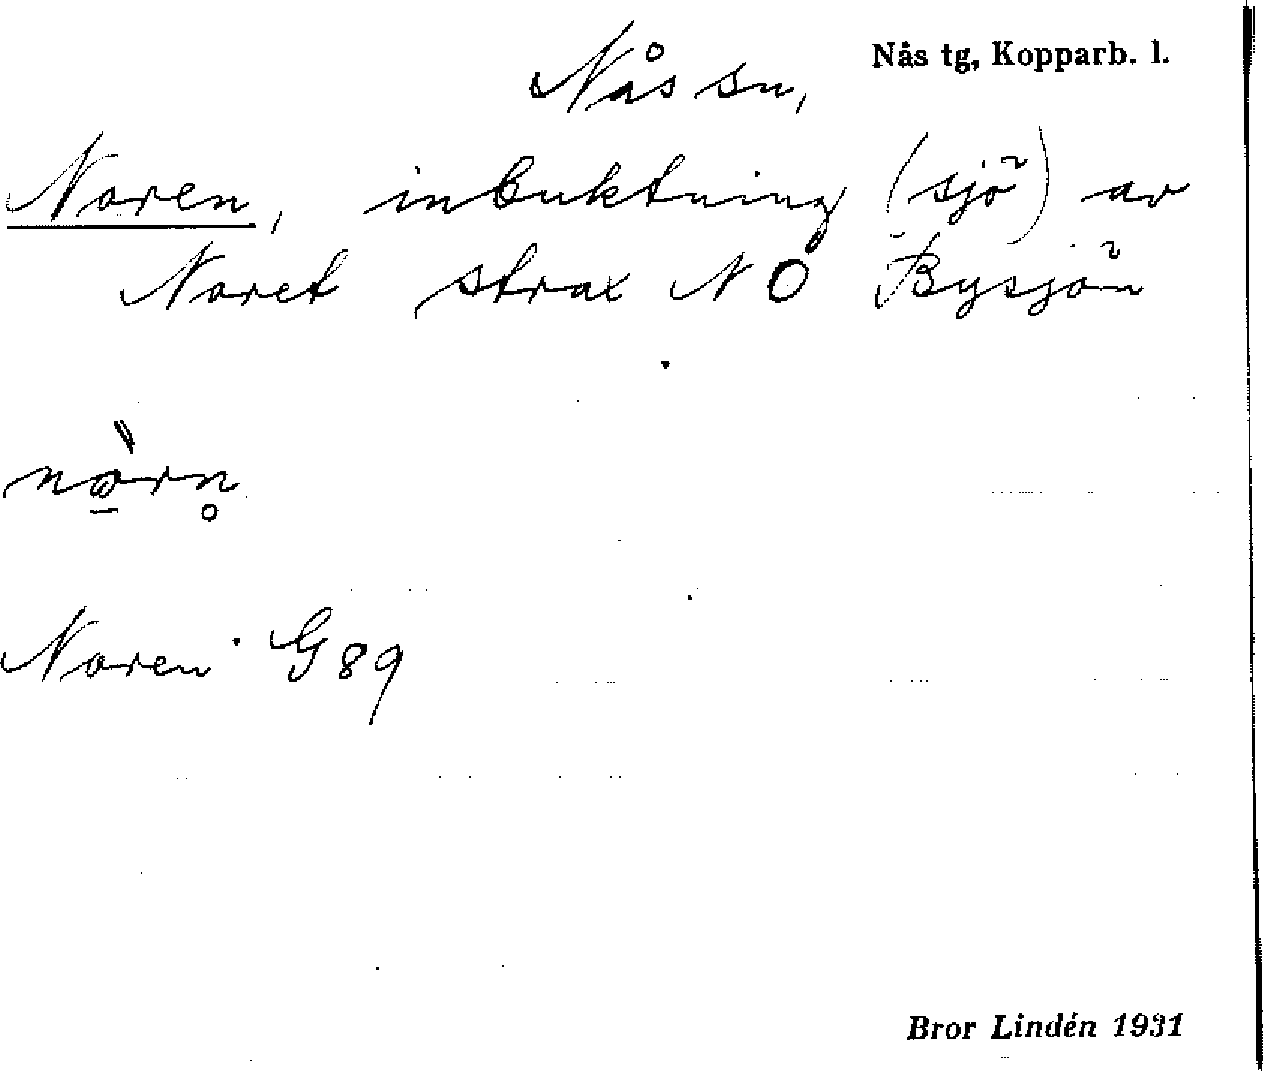 Nås tg, Kopparb. l.
Nås sn,
Noren, inbuktning (sjö) av
Noret strax NO Bysjön
nὼ̲rn̥
Noren G89
Bror Lindén 1931